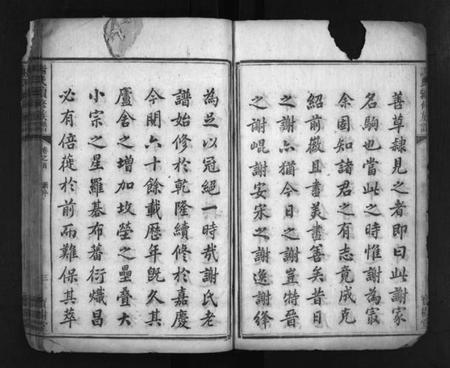 善草隷見之者即曰此謝家
名駒也當此之時惟謝為最
余固知諸君之有志竟成克
紹前徽且盡美盡善矣昔日
之謝亦猶今日之謝豈特晉
之謝崐謝安宋之謝逸謝絳
為足以冠絕一時哉謝氏老
譜始修於乾隆續修於嘉慶
今閱六十餘載歷年旣久其
廬舍之增加坟塋之壘疊大
小宗之星羅棊布蕃衍熾昌
必有倍蓰於前而難保其萃